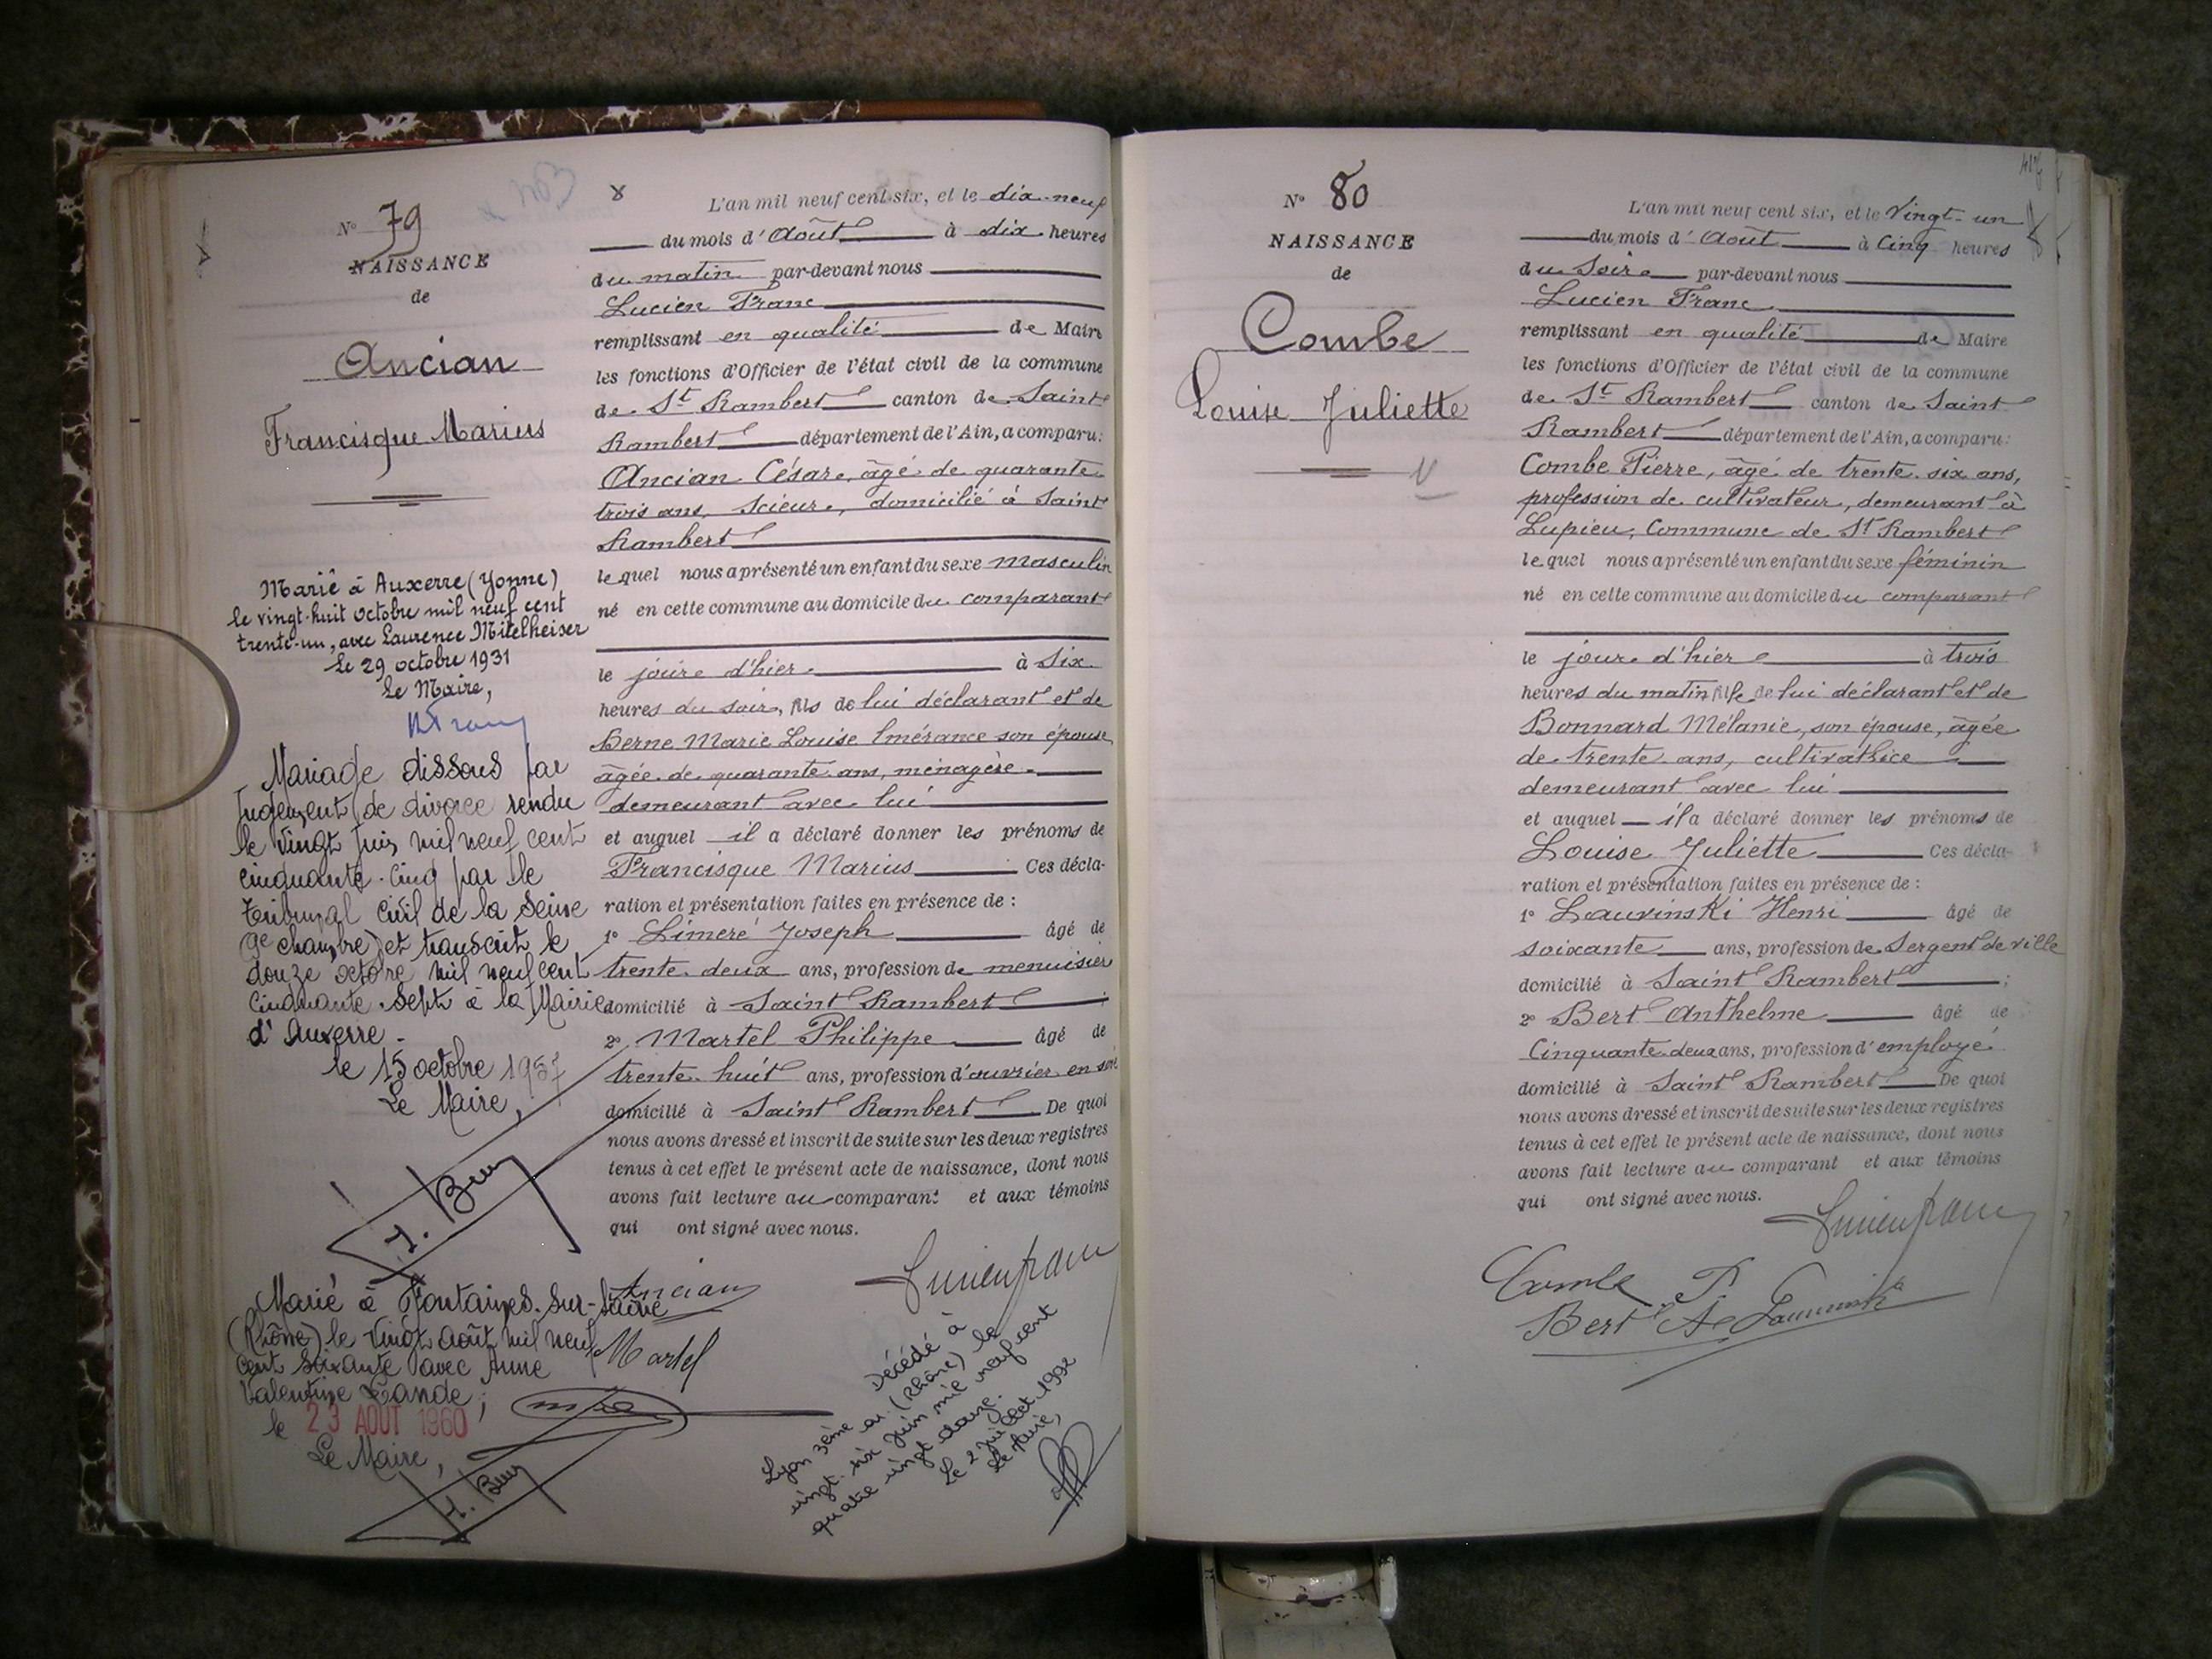 N° 79
NAISSANCE
de
Ancian
Francisque Marius
Marié à Auxerre (Yonne)
le vingt-huit octobre mil neuf cent
trente-un, avec Laurence Mitelheiser
Le 29 octobre 1931
Le Maire,
Mariage dissous par
Jugement de divorce rendu
le vingt juin mil neuf cent
cinquante-cinq par le
tribunal civil de la Seine
(9e chambre) et transcrit le
douze octobre mil neuf cent
cinquante-sept à la Mairie
d'Auxerre.
le 15 octobre 1957
Le Maire,
Marié à Fontaines-sur-Saône
(Rhône) le vingt août mil neuf
cent soixante avec Anne
Valentine
le 23 AOUT 1960
Le Maire,
L'an mil neuf cent six, et le dix-neuf
du mois d'Août à dix heures
du matin par-devant nous
Lucien Franc
remplissant en qualité de Maire
les fonctions d'Officier de l'état civil de la commune
de St Rambert canton de Saint
Rambert département de l'Ain, a comparu:
Ancian César, âgé de quarante
trois ans, scieur, domicilié à Saint
Rambert
lequel nous a présenté un enfant du sexe masculin
né en cette commune au domicile du comparant
le jour d'hier à six
heures du soir, fils de lui déclarant et de
Berne Marie Louise Emérance son épouse,
âgée de quarante ans, ménagère
demeurant avec lui
et auquel il a déclaré donner les prénoms de
Francisque Marius Ces décla-
ration et présentation faites en présence de :
1° Liméré Joseph âgé de
trente deux ans, profession de menuisier
domicilié à Saint Rambert ;
2° Martel Philippe âgé de
trente huit ans, profession d'ouvrier en soie
domicilié à Saint Rambert De quoi
nous avons dressé et inscrit de suite sur les deux registres
tenus à cet effet le présent acte de naissance, dont nous
avons fait lecture au comparant et aux témoins
qui ont signé avec nous.
Ancian
Lucien Franc
Martel
Décédé à
Lyon 3ème ar. (Rhône) le
vingt-six juin mil neuf cent
quatre vingt douze.
Le 2 Juillet 1992
Le Maire,
N° 80
NAISSANCE
de
Combe
Louise Juliette
L'an mil neuf cent six, et le vingt-un
du mois d'Août à cinq heures
du soir par-devant nous
Lucien Franc
remplissant en qualité de Maire
les fonctions d'Officier de l'état civil de la commune
de St Rambert canton de Saint
Rambert département de l'Ain, a comparu:
Combe Pierre, âgé de trente six ans,
profession de cultivateur, demeurant à
Lupieu, Commune de St Rambert
lequel nous a présenté un enfant du sexe féminin
né en cette commune au domicile du comparant
le jour d'hier à trois
heures du matin fille de lui déclarant et de
Bonnard Mélanie, son épouse, âgée
de trente ans, cultivatrice
demeurant avec lui
et auquel il a déclaré donner les prénoms de
Louise Juliette Ces décla-
ration et présentation faites en présence de :
1° Lauvinski Henri âgé de
soixante ans, profession de Sergent de ville
domicilié à Saint Rambert ;
2° Bert Anthelme âgé de
Cinquante deux ans, profession d'employé
domicilié à Saint Rambert De quoi
nous avons dressé et inscrit de suite sur les deux registres
tenus à cet effet le présent acte de naissance, dont nous
avons fait lecture au comparant et aux témoins
qui ont signé avec nous.
Lucien Franc
Combe P.
Bert A